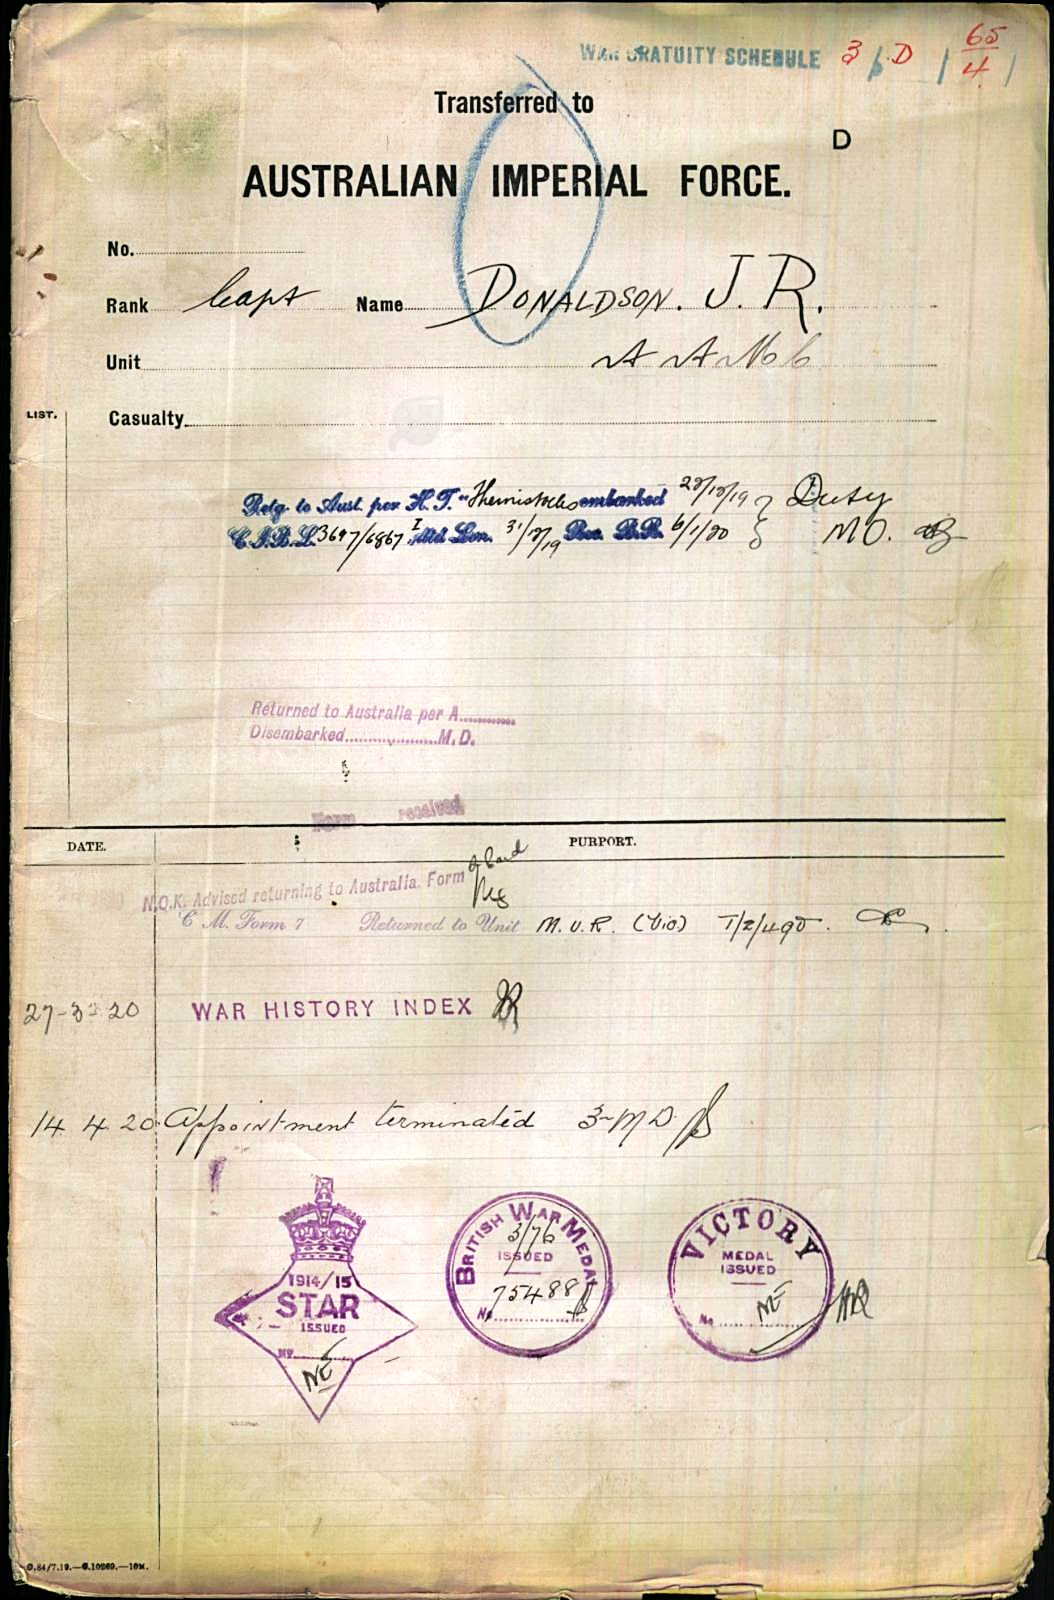 WAR GRATUITY SCHEDULE 3 / D / 65/4 /
Transferred to
D
AUSTRALIAN IMPERIAL FORCE.
No.
Rank Capt Name DONALDSON. J. R.
Unit A A M C
LIST.
Casualty
Retg. to Aust. per H.T. "Themistocles embarked Duty
C.I.B.L. 3697/6867 Mtd Lon. Rec. B.R. 6/1/20 M O.
Returned to Australia per A
Disembarked M.D.
Form received
DATE. PURPORT.
N.O.K. Advised returning to Australia. Form
C M. Form 7 Returned to Unit M. U. R. (Vic)
27-3-20 WAR HISTORY INDEX
14 4 20 Appointment terminated 3 M D
1914/15
STAR
ISSUED
No. NE
BRITISH WAR MEDAL
3/76
ISSUED
No. 75488
VICTORY
MEDAL
ISSUED
No. NE